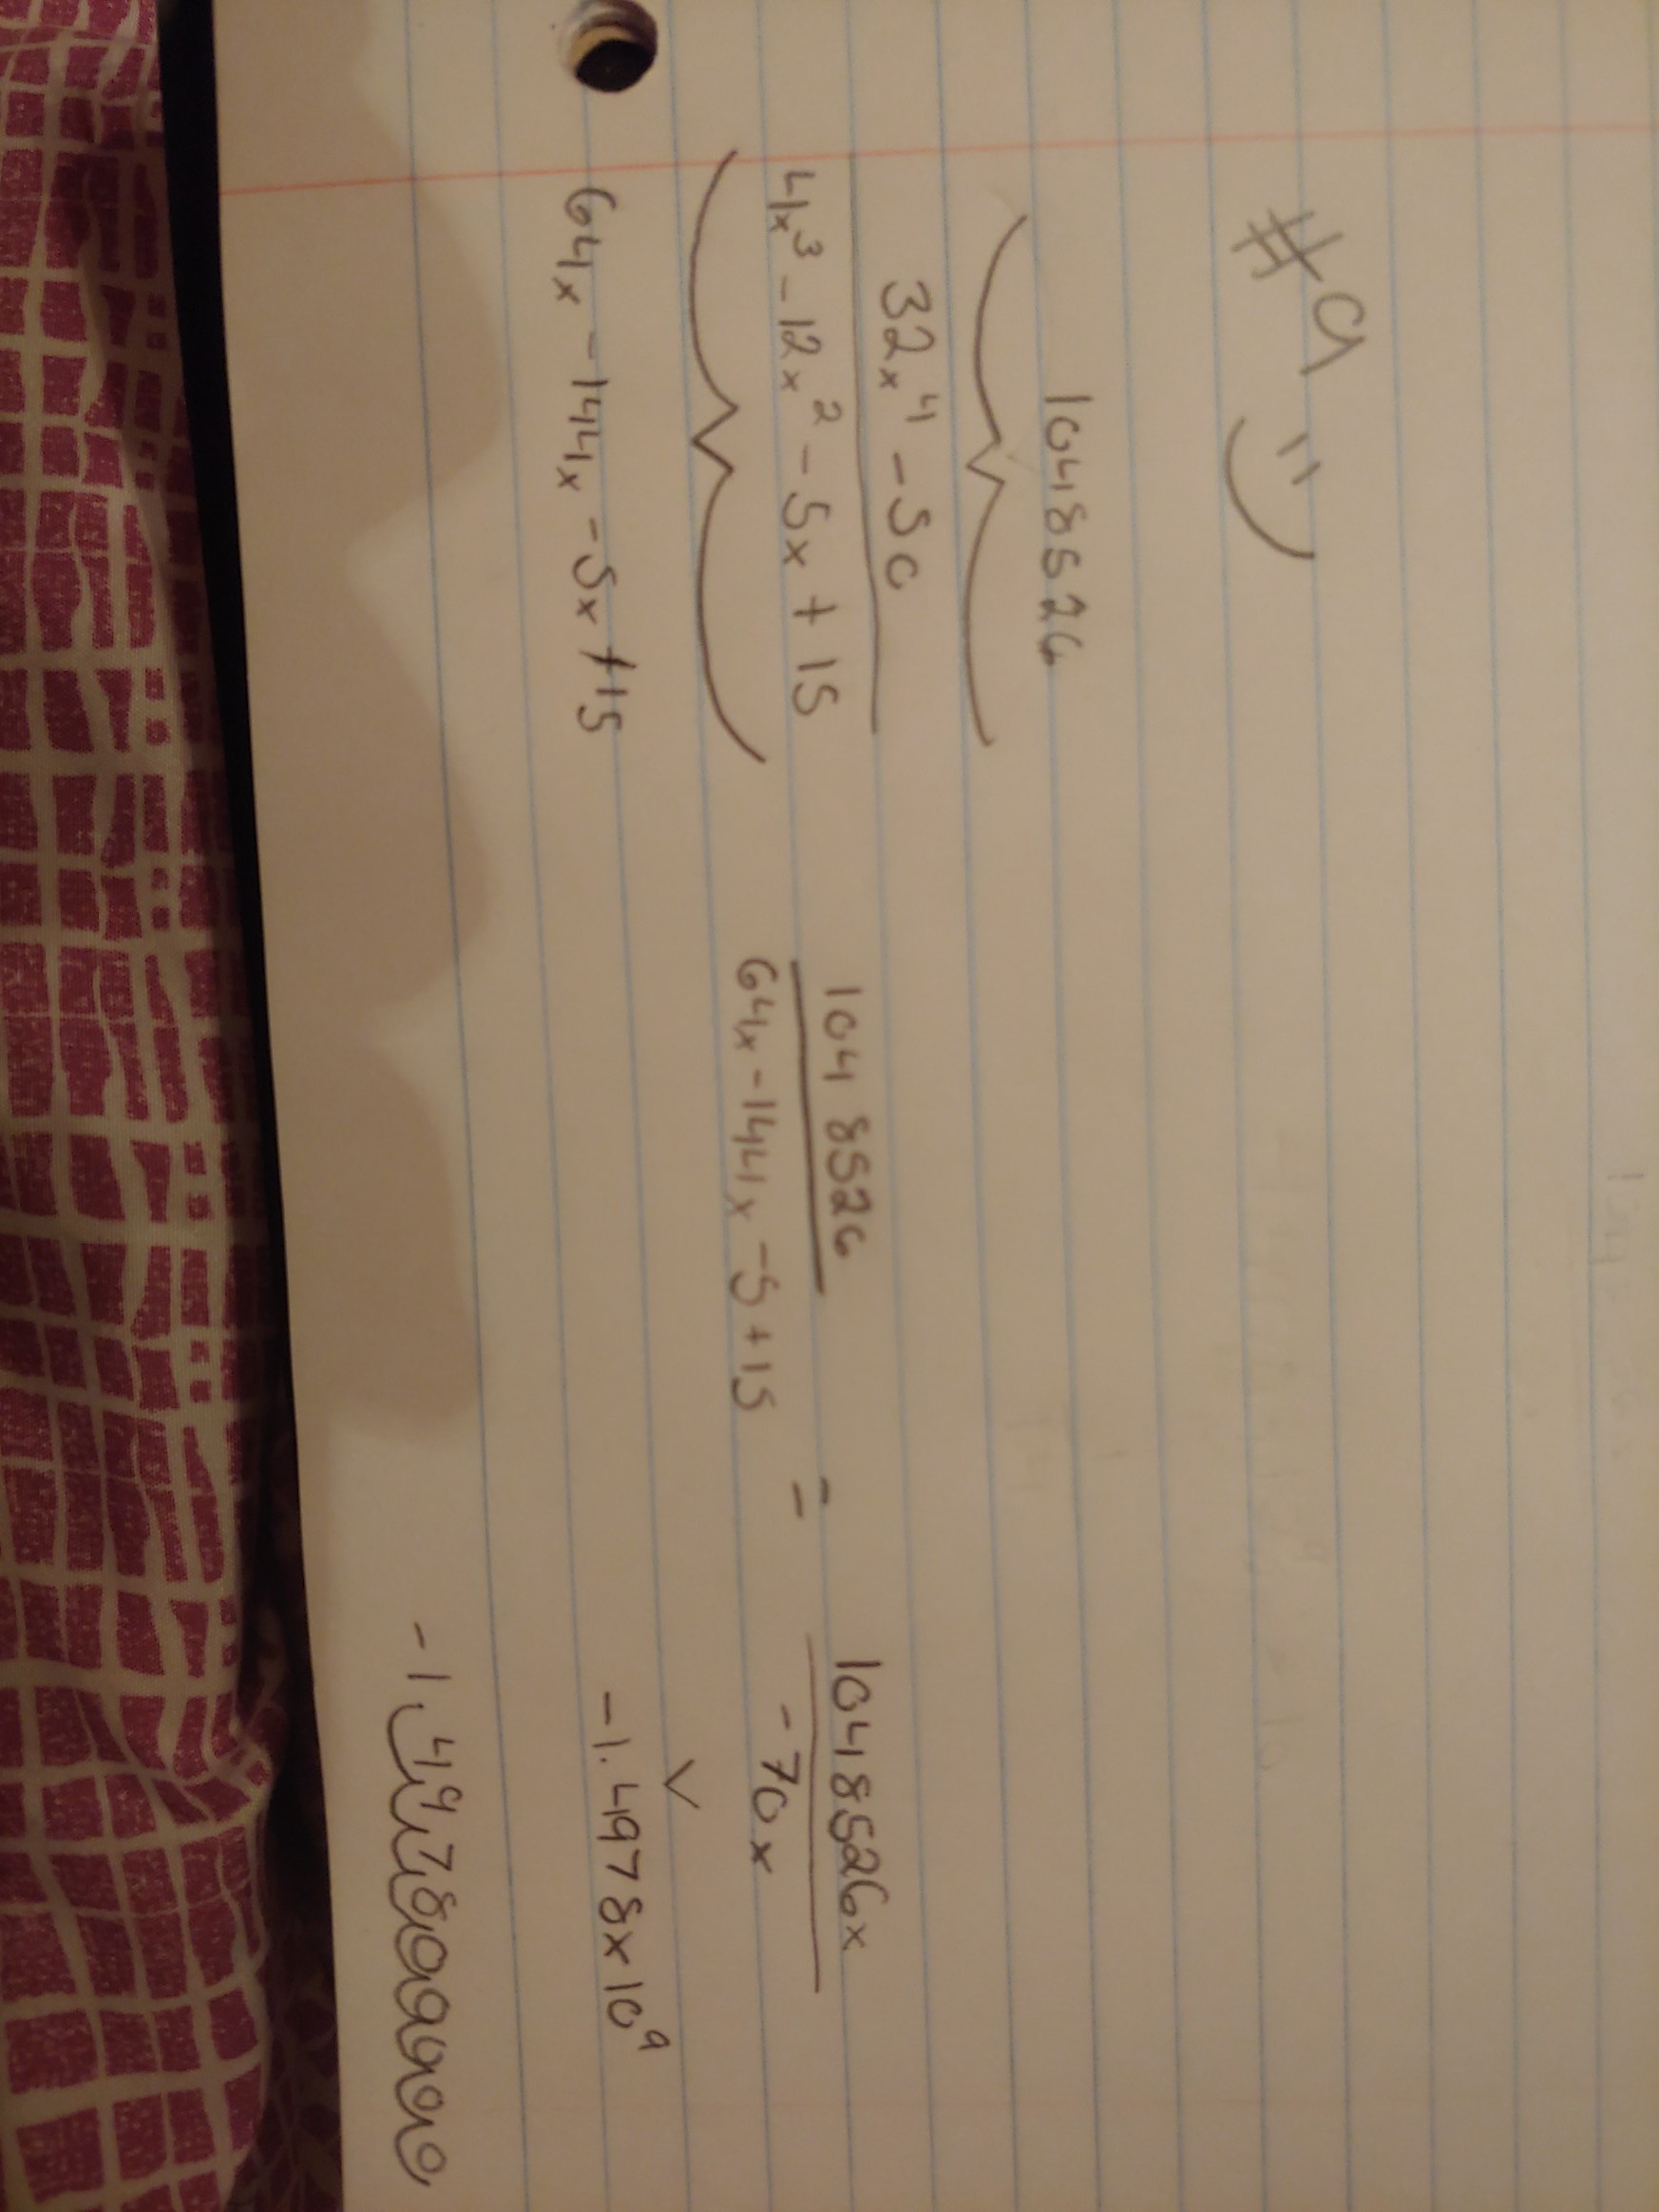 #9
1048526
32x⁴ - 50
4x³ - 12x² - 5x + 15
64x - 144x - 5x + 15
1048526
64x - 144x - 5 + 15
=
1048526x
-70x
-1.4978x10⁹